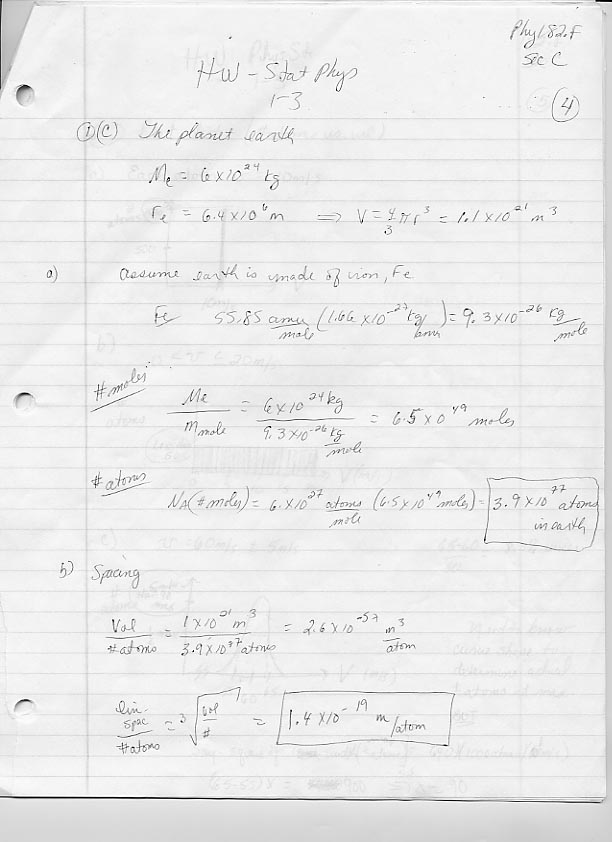 Phy 182.F
Sec C
HW - Stat Phys
1-3
(4)
① (C) The planet earth
Me = 6 x 10^24 kg
re = 6.4 x 10^6 m ⟹ V = 4/3 πr^3 = 1.1 x 10^21 m^3
a) Assume earth is made of iron, Fe
Fe 55.85 amu/mole (1.66 x 10^-27 kg/amu) = 9.3 x 10^-26 kg/mole
# moles
Me/m mole = 6 x 10^24 kg / 9.3 x 10^-26 kg/mole = 6.5 x 0^49 moles
# atoms
NA (# moles) = 6. x 10^27 atoms/mole (6.5 x 10^49 moles) = 3.9 x 10^77 atoms
in earth
b) Spacing
Vol/# atoms = 1 x 10^21 m^3 / 3.9 x 10^77 atoms = 2.6 x 10^-57 m^3/atom
lin. spac/# atoms = ³√(vol/#) = 1.4 x 10^-19 m/atom